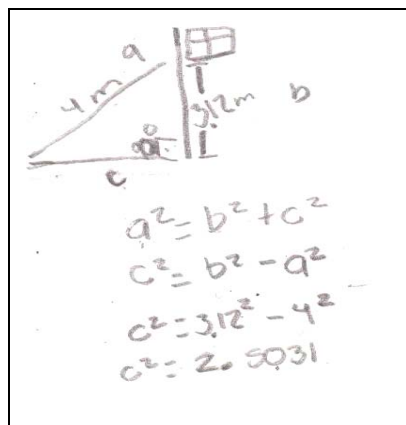 a
4 m
3,12m
b
c
a² = b² + c²
c² = b² - a²
c² = 3,12² - 4²
c² = 2.5031